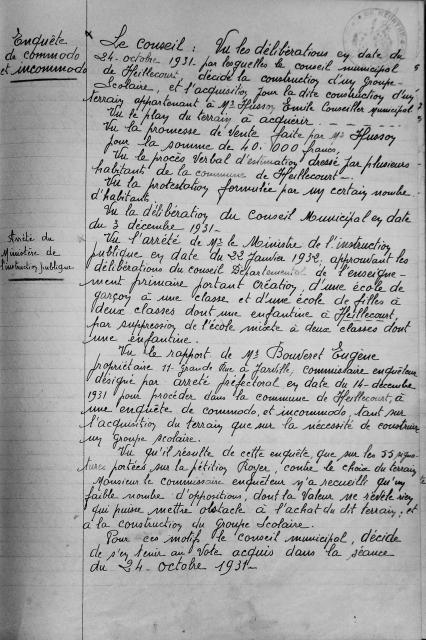 Enquête
de commodo
et incommodo
Le conseil : Vu les délibérations en date du
24 octobre 1931 par lesquelles le conseil municipal
de Heillecourt, décide la construction d'un Groupe
Scolaire, et l'acquisition pour la dite construction d'un
terrain appartenant à Mr Husson Emile Conseiller Municipal
Vu le plan du terrain à acquérir.
Vu la promesse de vente faite par Mr Husson
pour la somme de 40.000 francs,
Vu le procès Verbal d'estimation dressé par plusieurs
habitants de la commune de Heillecourt.
Vu la protestation formulée par un certain nombre
d'habitants
Vu la délibération du Conseil Municipal en date
du 3 décembre 1931
Arrêté du
Ministère de
l'instruction publique
Vu l'arrêté de Mr le Ministre de l'instruction
publique en date du 22 Janvier 1932, approuvant les
délibérations du conseil Départemental de l'enseigne-
ment primaire portant création, d'une école de
garçon à une classe et d'une école de filles à
deux classes dont une enfantine à Heillecourt,
par suppression de l'école mixte à deux classes dont
une enfantine.
Vu le rapport de Mr Bouveret Eugène
propriétaire 11 Grande Rue à Jarville, commissaire enquêteur
désigné par arrêté préfectoral en date du 14 décembre
1931 pour procéder dans la commune de Heillecourt, à
une enquête de commodo, et incommodo, tant sur
l'acquisition du terrain que sur la nécessité de construire
un groupe scolaire.
Vu qu'il résulte de cette enquête, que sur les 55 signa-
tures portées sur la pétition Royer, contre le choix du terrain
Monsieur le commissaire enquêteur n'a recueilli qu'un
faible nombre d'oppositions, dont la valeur ne révèle rien
qui puisse mettre obstacle à l'achat du dit terrain, et
à la construction du Groupe Scolaire.
Pour ces motif le conseil municipal, décide
de s'en tenir au Vote acquis dans la séance
du 24 octobre 1931